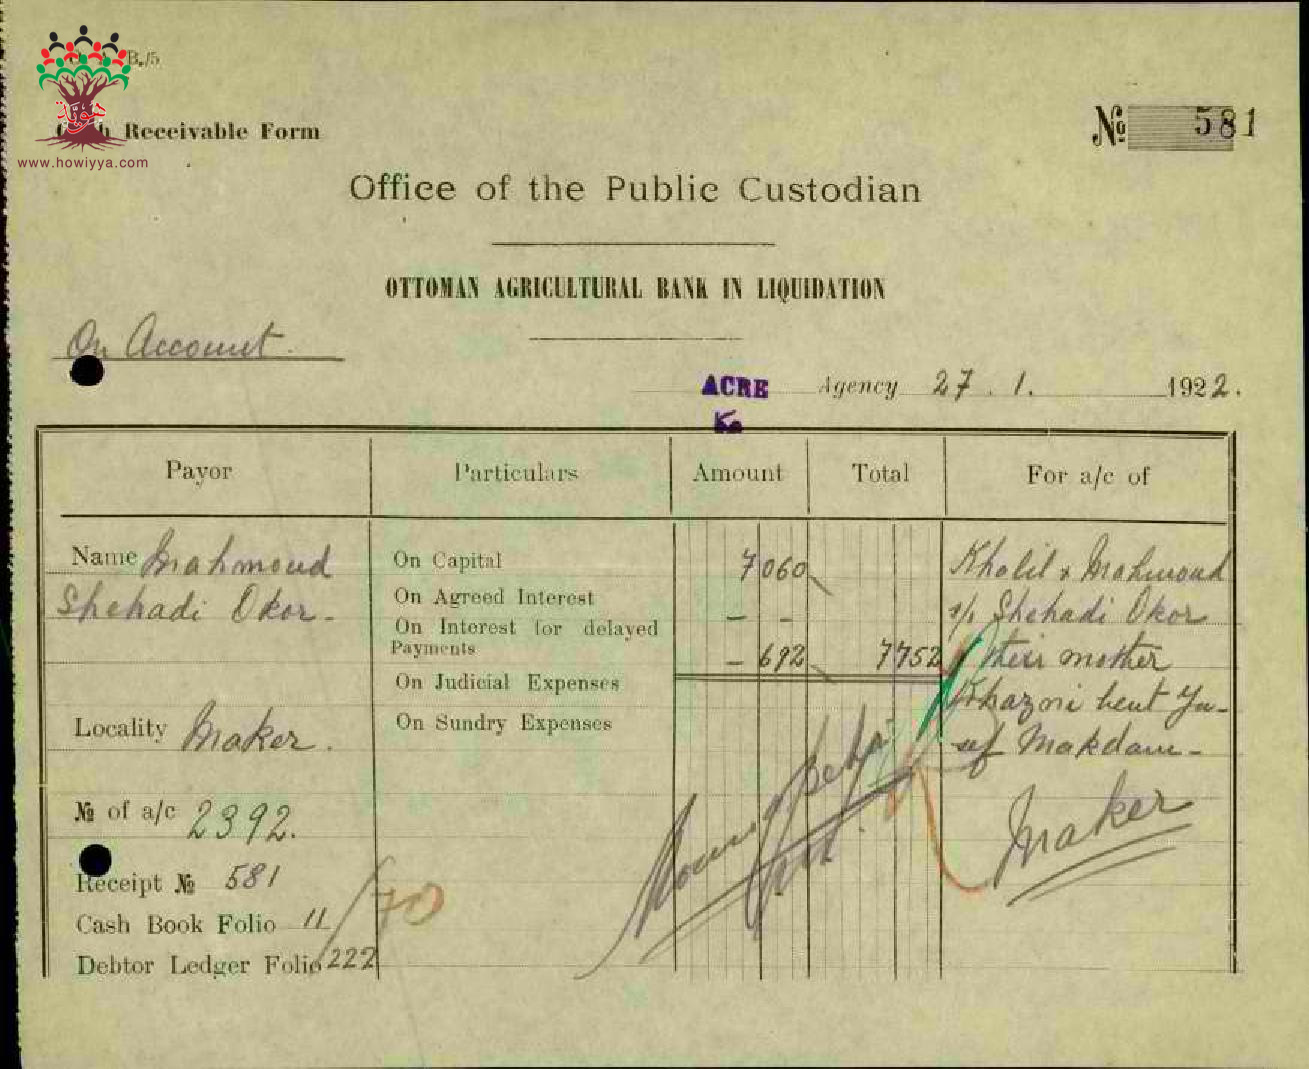 B./5
هوية
www.howiyya.com
Receivable Form
№ 581
Office of the Public Custodian
OTTOMAN AGRICULTURAL BANK IN LIQUIDATION
On Account.
ACRE Agency 27.1. 1922.
Payor Particulars Amount Total For a/c of
Name Mahmoud On Capital 7 060 Khalil & Mahmoud
Shehadi Okor - On Agreed Interest - - s/o Shehadi Okor
On Interest for delayed
Payments - 692 7752 their mother
On Judicial Expenses Khazni bent Yu-
Locality Maker. On Sundry Expenses suf Makdam -
№ of a/c 2392. Maker
Receipt № 581
Cash Book Folio 11 / 70
Debtor Ledger Folio 222